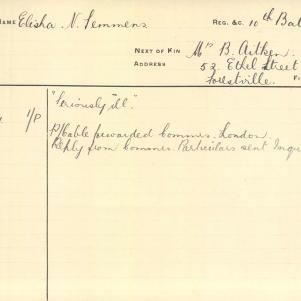 NAME Elisha N. Semmens REG. &C. 10th Bat
NEXT OF KIN Mrs B. Aitken.
ADDRESS 52 Ethel Street
Forestville.
"Seriously ill."
1/P P/Cable forwarded Commrs. London.
Reply from Commrs. Particulars sent Inqu